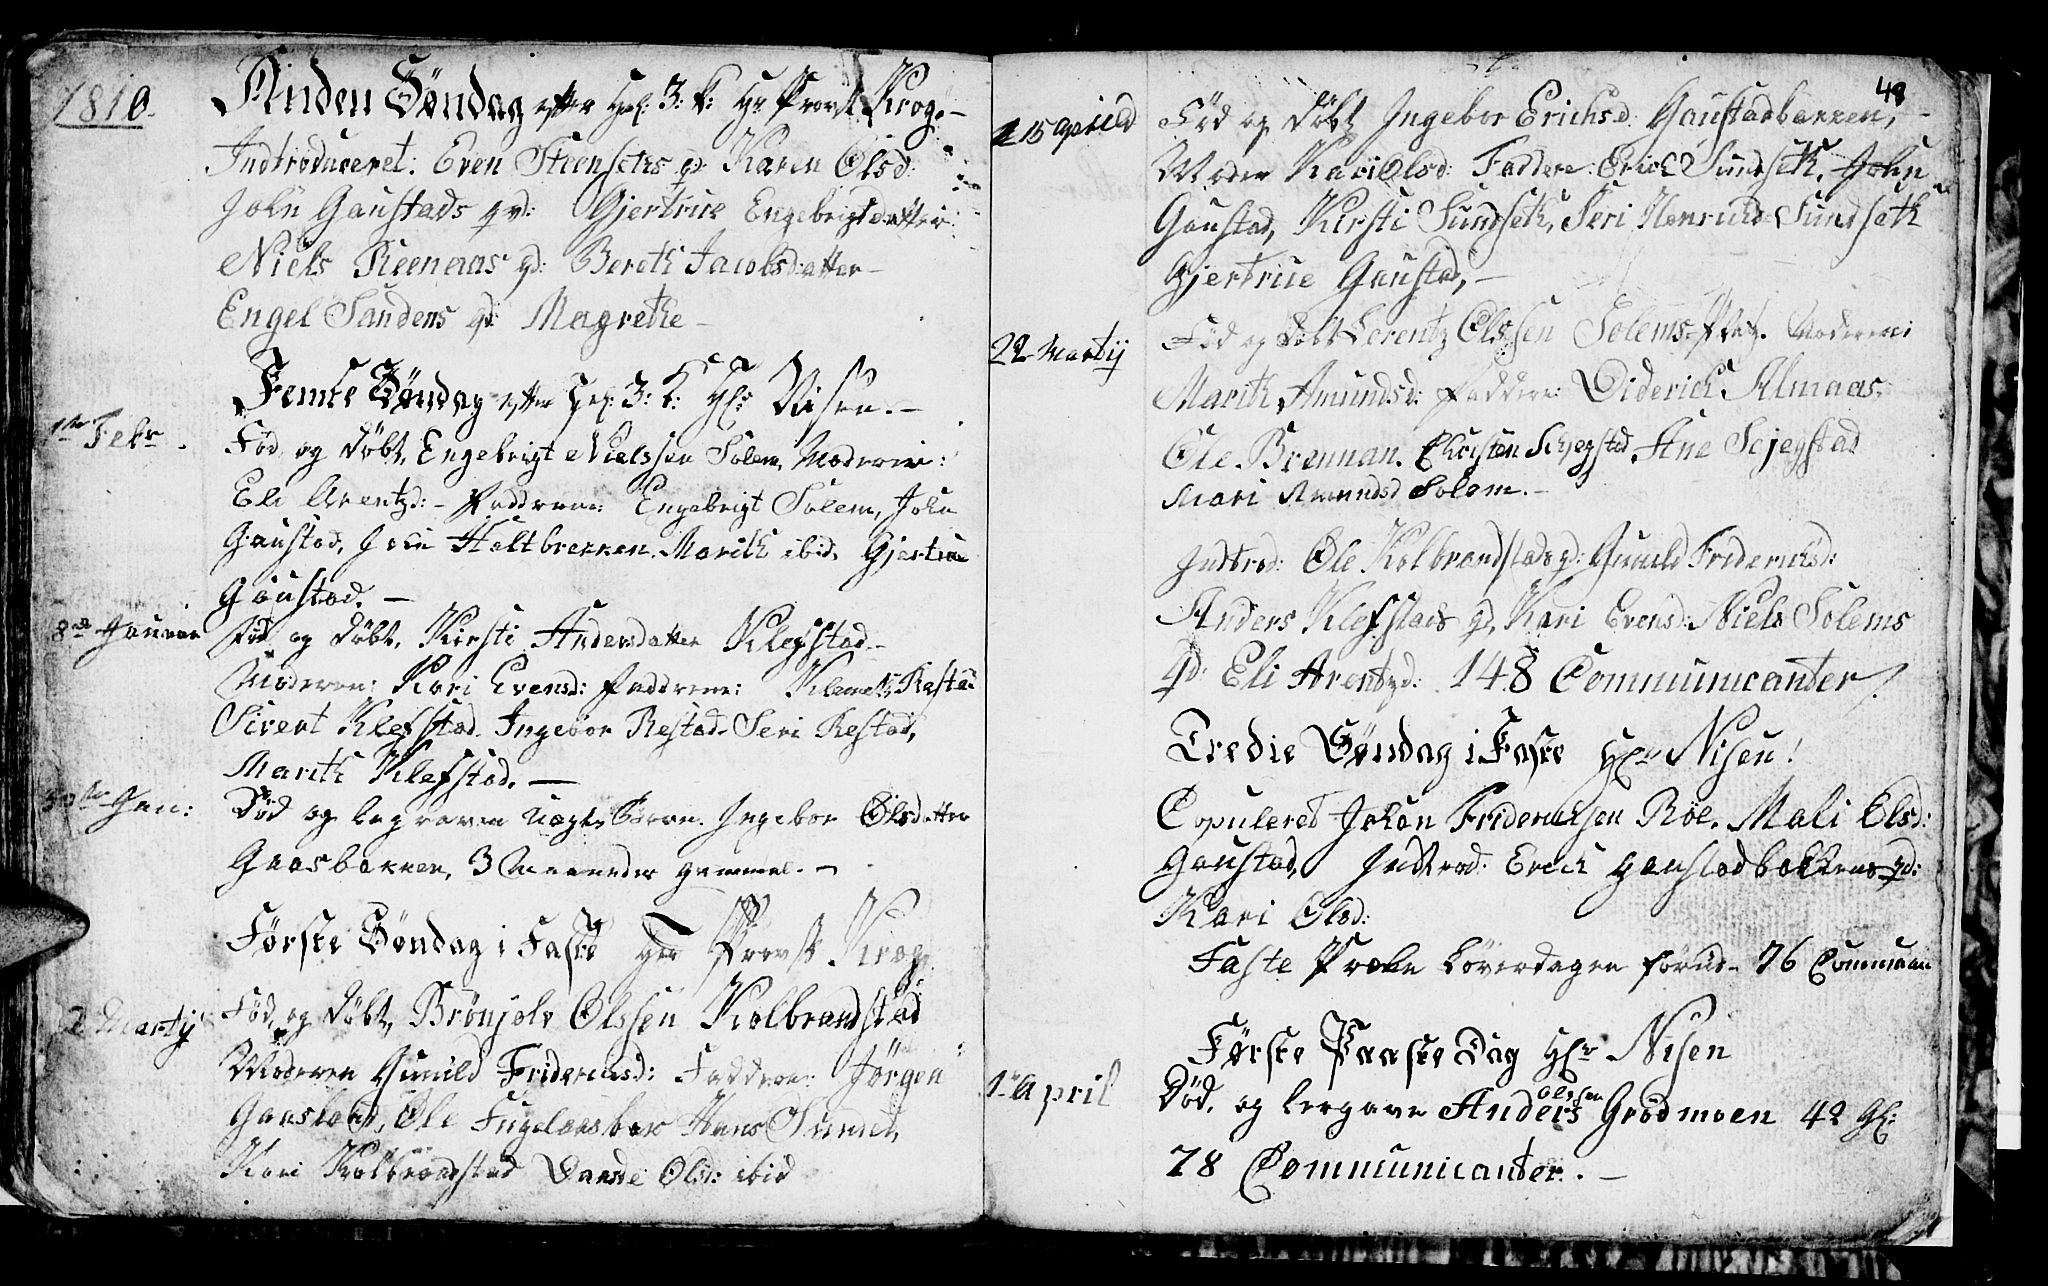 1810.
Anden Søndag efter Hel: 3: K: Hr Provst Krog. –
Indtroduceret: Even Steensets qv: Karen Olsd:
John Gaustads qv: Gjertrue Engebrigtsdatter:
Niels Reenaas qv: Bereth Jacobsdatter –
Engel Sandens qv: Magrethe –
Femte Søndag efter Hel: 3: K: Hr: Nisen. –
1ste Febr.
Fød og døbt, Engebrigt Nielssen Solem, Moderen:
Eli Arentzd: – Faddrene: Engebrigt Solem, John
Gaustad, John Holtbrekken. Marith ibid, Gjertrue
Gaustad. –
8de Januar
Fød og døbt, Kirsti Andersdatter Klefstad. –
Moderen: Kari Evensd: Faddrene: Klemet Restad
Sivert Klefstad. Ingebor Restad. Seri Restad,
Marith Klefstad. –
Jan:
Død og begraven Uægte Barn. Ingebor Olsdatter
Gaasbakken, 3 Maaneder gammel. –
Første Søndag i Faste Hr Provst Krog.
2 Martij
Fød og døbt, Brønjolv Olssen Kolbrandstad
Moderen Gunild Fridericksd: Faddrene: Jørgen
Gaustad, Ole Fuglaasbak Hans Sunset,
Kari Kolbrandstad Olsd: ibid
48
15 Aprild
Fød og døbt Ingebor Erichsd: Gaustadbakken, –
Moder Kari Olsd: Faddere: Erich Sundseth, John
Gaustad, Kirsti Sundseth, Seri Henrichsd Sundseth
Gjertrue Gaustad, –
22 Martij
Fød og døbt Lorentz Olssen Solems-Plads. Moderen:
Marith Amundsd: Faddere: Diderich Almaas.
Ole Brennan. Christen Schjegstad, Ane Scjegstad
Mari Amundsd Solem. –
Indtrod: Ole Kolbrandstads qv: Gunild Fridericksd:
Anders Klefstads qv, Kari Evensd: Niels Solems
qv: Eli Arentzd: 148 Communicanter.
Tredie Søndag i Faste Hr: Nisen!
Copuleret Johan Fridericksen Røe. Mali Olsd:
Gaustad, Indtrod: Erich Gaustadbakkens qv:
Kari Olsd:
Faste Præken Løverdagen forud – 76 Communican
Første Paaske Dag Hr: Nisen
1. April
Død, og bergave Anders Olssen Grødmoen 42 Gl:
78 Communicanter. –